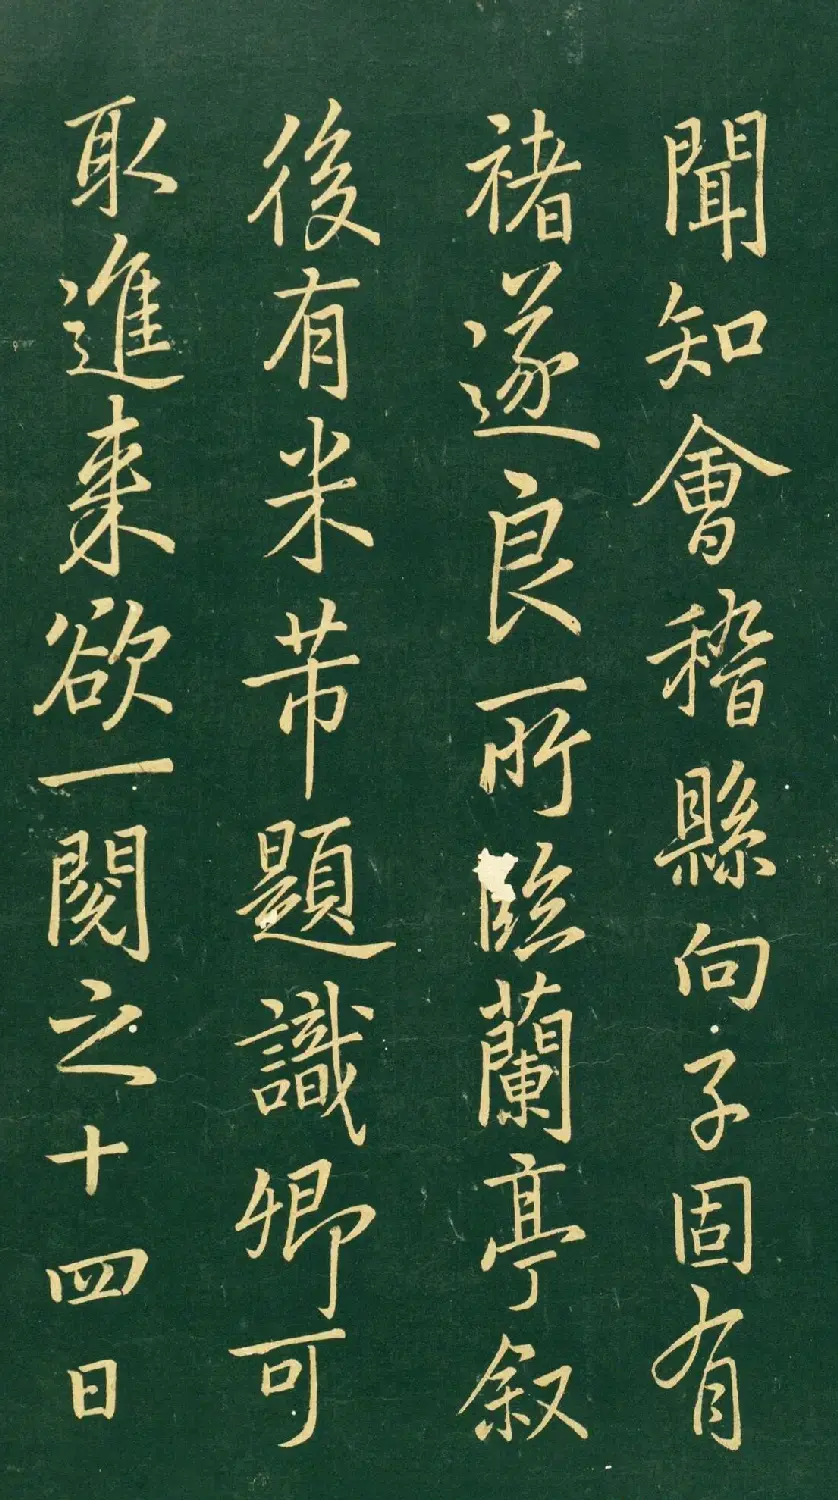 聞知會稽縣向子固有
褚遂良所臨蘭亭叙
後有米芾題識卿可
取進来欲一閱之十四日